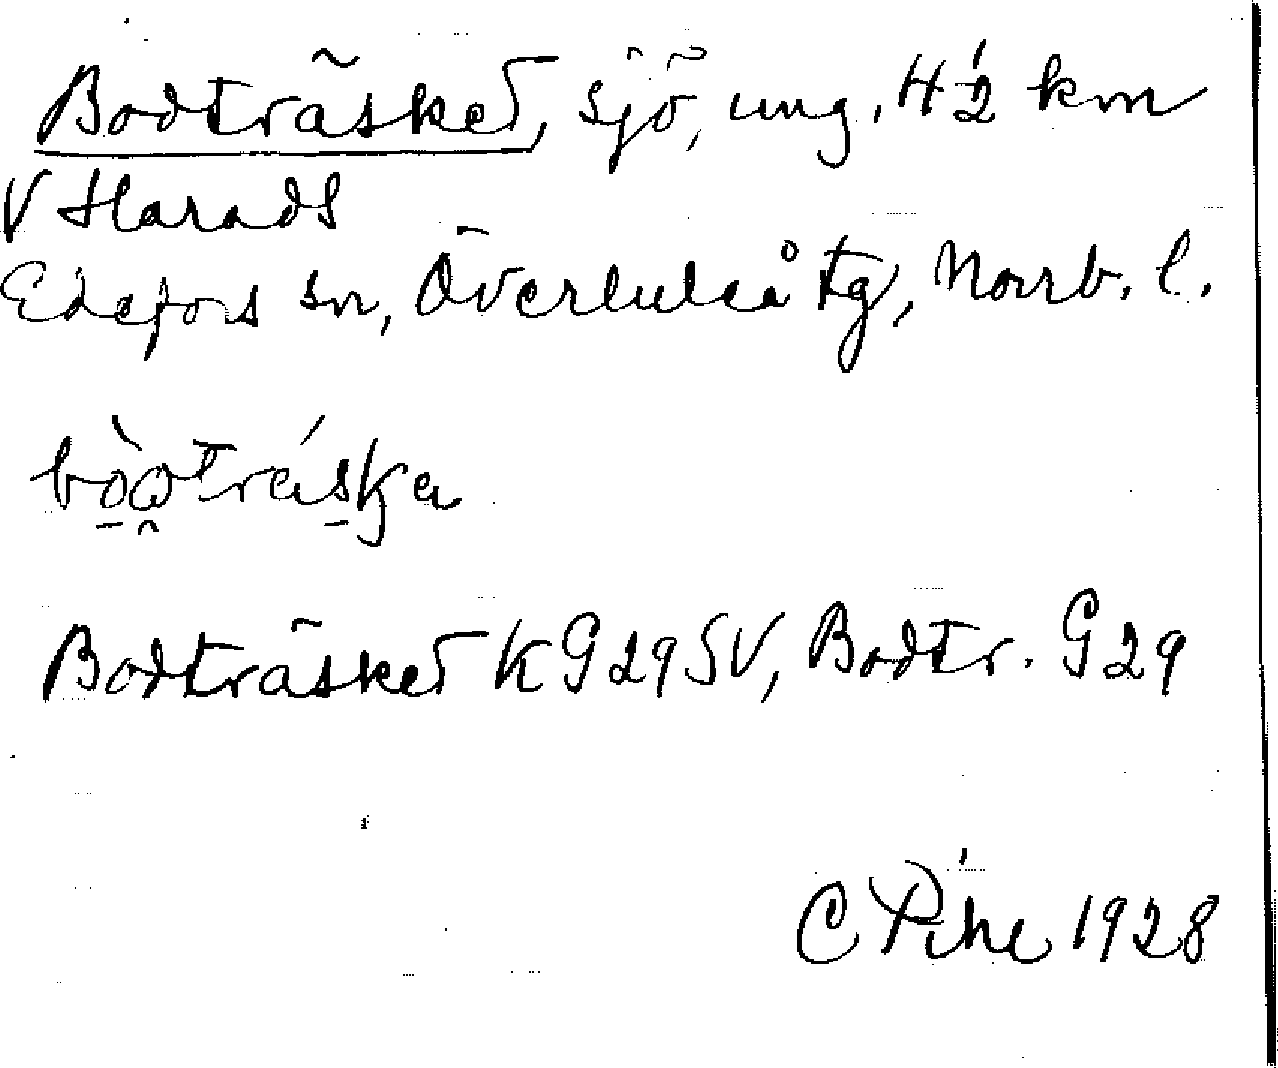 Bodträsket, sjö, ung. 4 ½ km
V Harads
Edefors sn, Överluleå tg, Norrb. l.
Bodträsket KG29SV, Bodtr. G29
C Pihe 1928